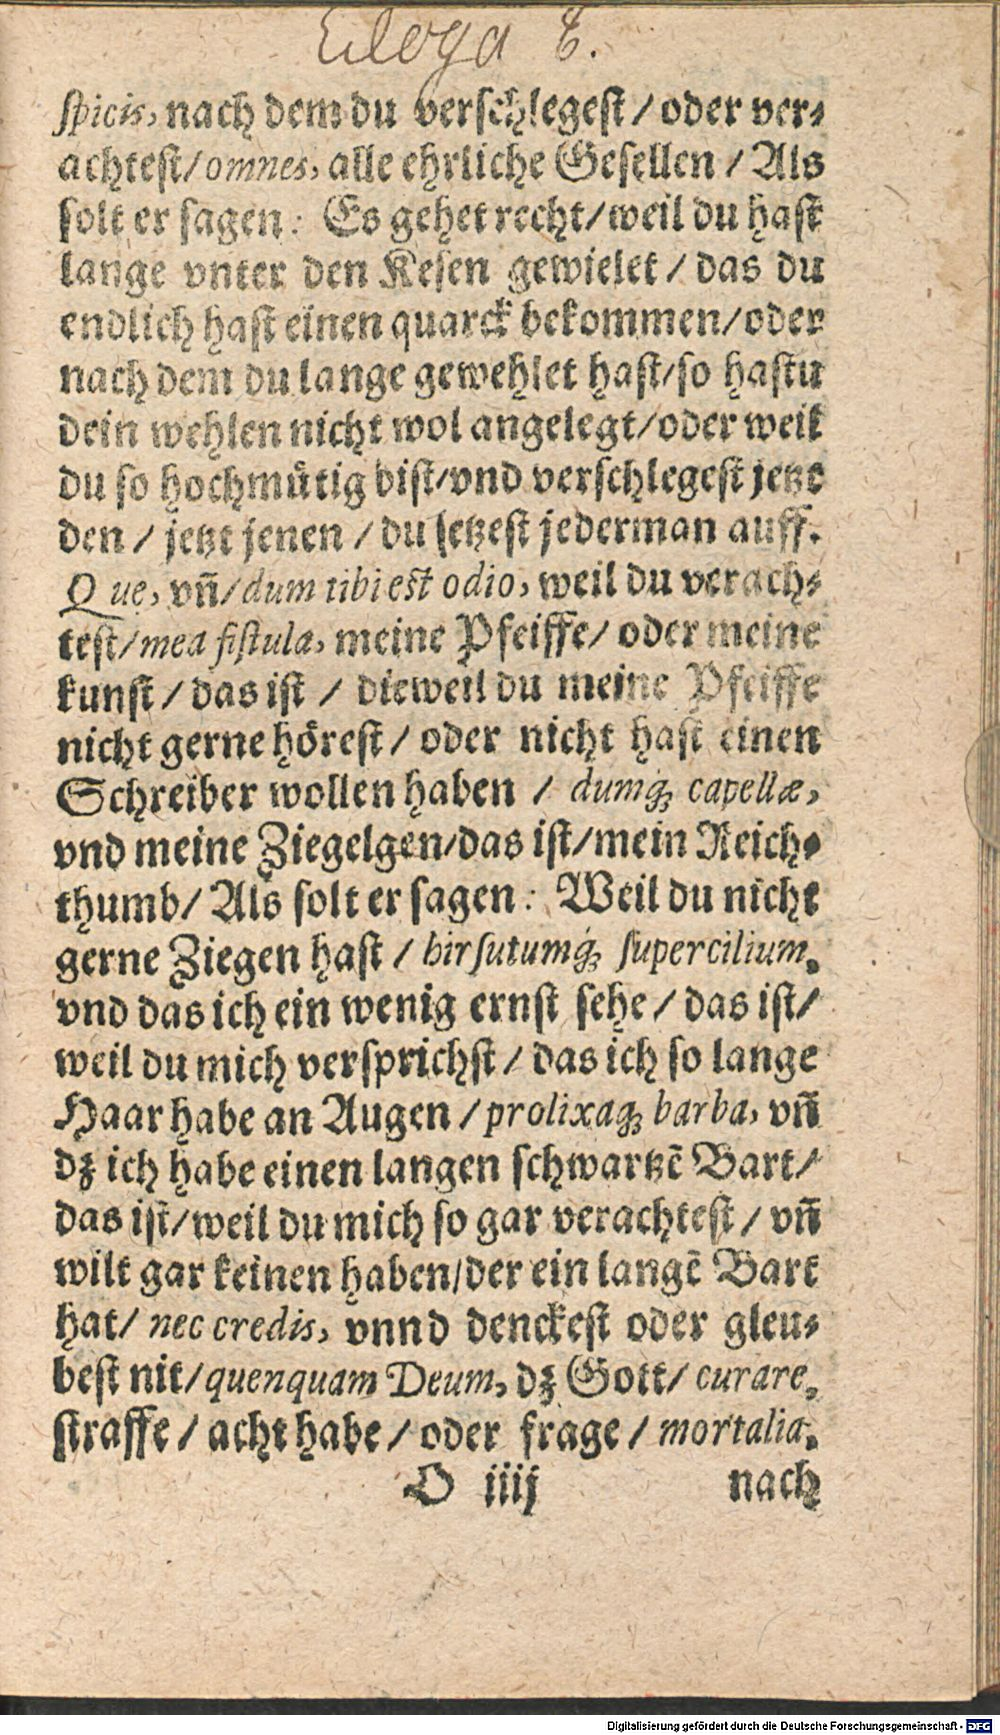 Ecloga 8.
ſpicis, nach dem du verſchlegeſt / oder ver⸗
achteſt / omnes, alle ehrliche Geſellen / Als
ſolt er ſagen: Es gehet recht / weil du haſt
lange vnter den Keſen gewielet / das du
endlich haſt einen quarck bekommen / oder
nach dem du lange gewehlet haſt / ſo haſtu
dein wehlen nicht wol angelegt / oder weil
du ſo hochmuͤtig biſt / vnd verſchlegeſt jetzt
den / jetzt jenen / du ſetzeſt jederman auff.
Que, vñ / dum tibi eſt odio, weil du verach⸗
teſt / mea fiſtula, meine Pfeiffe / oder meine
kunſt / das iſt / dieweil du meine Pfeiffe
nicht gerne hoͤreſt / oder nicht haſt einen
Schreiber wollen haben / dumq́; capellæ,
vnd meine Ziegelgen / das iſt / mein Reich⸗
thumb / Als ſolt er ſagen: Weil du nicht
gerne Ziegen haſt / hirſutumq́; ſupercilium,
vnd das ich ein wenig ernſt ſehe / das iſt /
weil du mich verſprichſt / das ich ſo lange
Haar habe an Augen / prolixaq; barba, vñ
dz ich habe einen langen ſchwartzẽ Bart /
das iſt / weil du mich ſo gar verachteſt / vñ
wilt gar keinen haben / der ein langẽ Bart
hat / nec credis, vnnd denckeſt oder gleu⸗
beſt nit / quenquam Deum, dz Gott / curare,
ſtraffe / acht habe / oder frage / mortalia,
O iiij nach
Digitalisierung gefördert durch die Deutsche Forschungsgemeinschaft - DFG